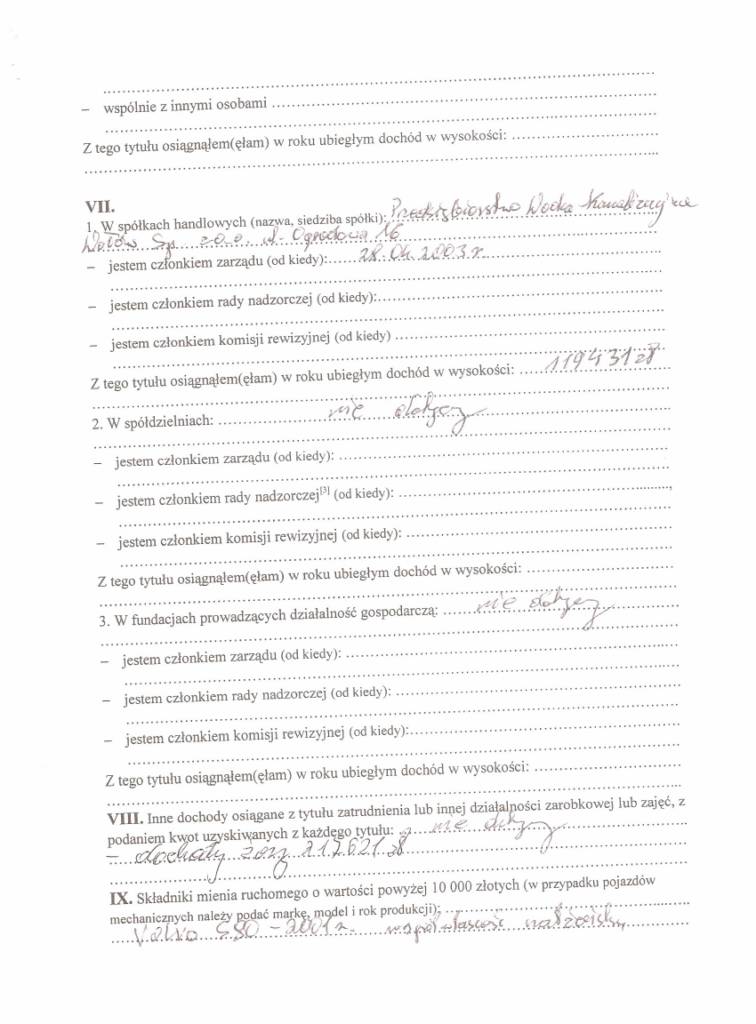 – wspólnie z innymi osobami
Z tego tytułu osiągnąłem(ęłam) w roku ubiegłym dochód w wysokości:
VII.
1. W spółkach handlowych (nazwa, siedziba spółki): Przedsiębiorstwo Wodno Kanalizacyjne
Wołów Sp. zo.o. ul. Ogrodowa 16
– jestem członkiem zarządu (od kiedy): 28.04.2003 r.
– jestem członkiem rady nadzorczej (od kiedy):
– jestem członkiem komisji rewizyjnej (od kiedy)
Z tego tytułu osiągnąłem(ęłam) w roku ubiegłym dochód w wysokości: 119431 zł
2. W spółdzielniach: nie dotyczy
– jestem członkiem zarządu (od kiedy):
– jestem członkiem rady nadzorczej[3] (od kiedy):
– jestem członkiem komisji rewizyjnej (od kiedy):
Z tego tytułu osiągnąłem(ęłam) w roku ubiegłym dochód w wysokości:
3. W fundacjach prowadzących działalność gospodarczą: nie dotyczy
– jestem członkiem zarządu (od kiedy):
– jestem członkiem rady nadzorczej (od kiedy):
– jestem członkiem komisji rewizyjnej (od kiedy):
Z tego tytułu osiągnąłem(ęłam) w roku ubiegłym dochód w wysokości:
VIII. Inne dochody osiągane z tytułu zatrudnienia lub innej działalności zarobkowej lub zajęć, z
podaniem kwot uzyskiwanych z każdego tytułu: nie dotyczy
– dochody żony 217621 zł
IX. Składniki mienia ruchomego o wartości powyżej 10 000 złotych (w przypadku pojazdów
mechanicznych należy podać markę, model i rok produkcji):
Volvo S80 – 2001 r. współwłasność małżeńska